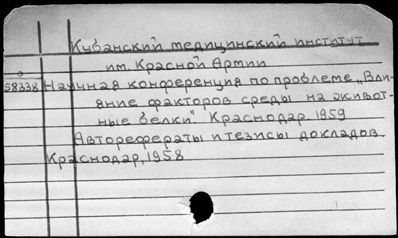 Кубанский медицинский институт
им. Красной Армии
58338 Научная конференция по проблеме „Вли-
яние факторов среды на живот-
ные белки". Краснодар. 1959
Авторефераты и тезисы докладов.
Краснодар, 1958